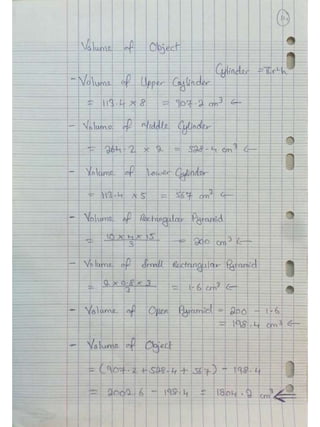 11.
Volume of Object
Cylinder = πr²h
- Volume of Upper Cylinder
= 113.4 × 8 = 907.2 cm³ ←
- Volume of Middle Cylinder
= 264.2 × 2 = 528.4 cm³ ←
- Volume of Lower Cylinder
= 113.4 × 5 = 567 cm³ ←
- Volume of Rectangular Pyramid
= 10 × 4 × 15 / 3 = 200 cm³ ←
- Volume of Small Rectangular Pyramid
= 2 × 0.8 × 3 / 3 = 1.6 cm³ ←
- Volume of Open Pyramid = 200 - 1.6
= 198.4 cm³ ←
- Volume of Object
= (907.2 + 528.4 + 567) - 198.4
= 2002.6 - 198.4 = 1804.2 cm³ ⇐